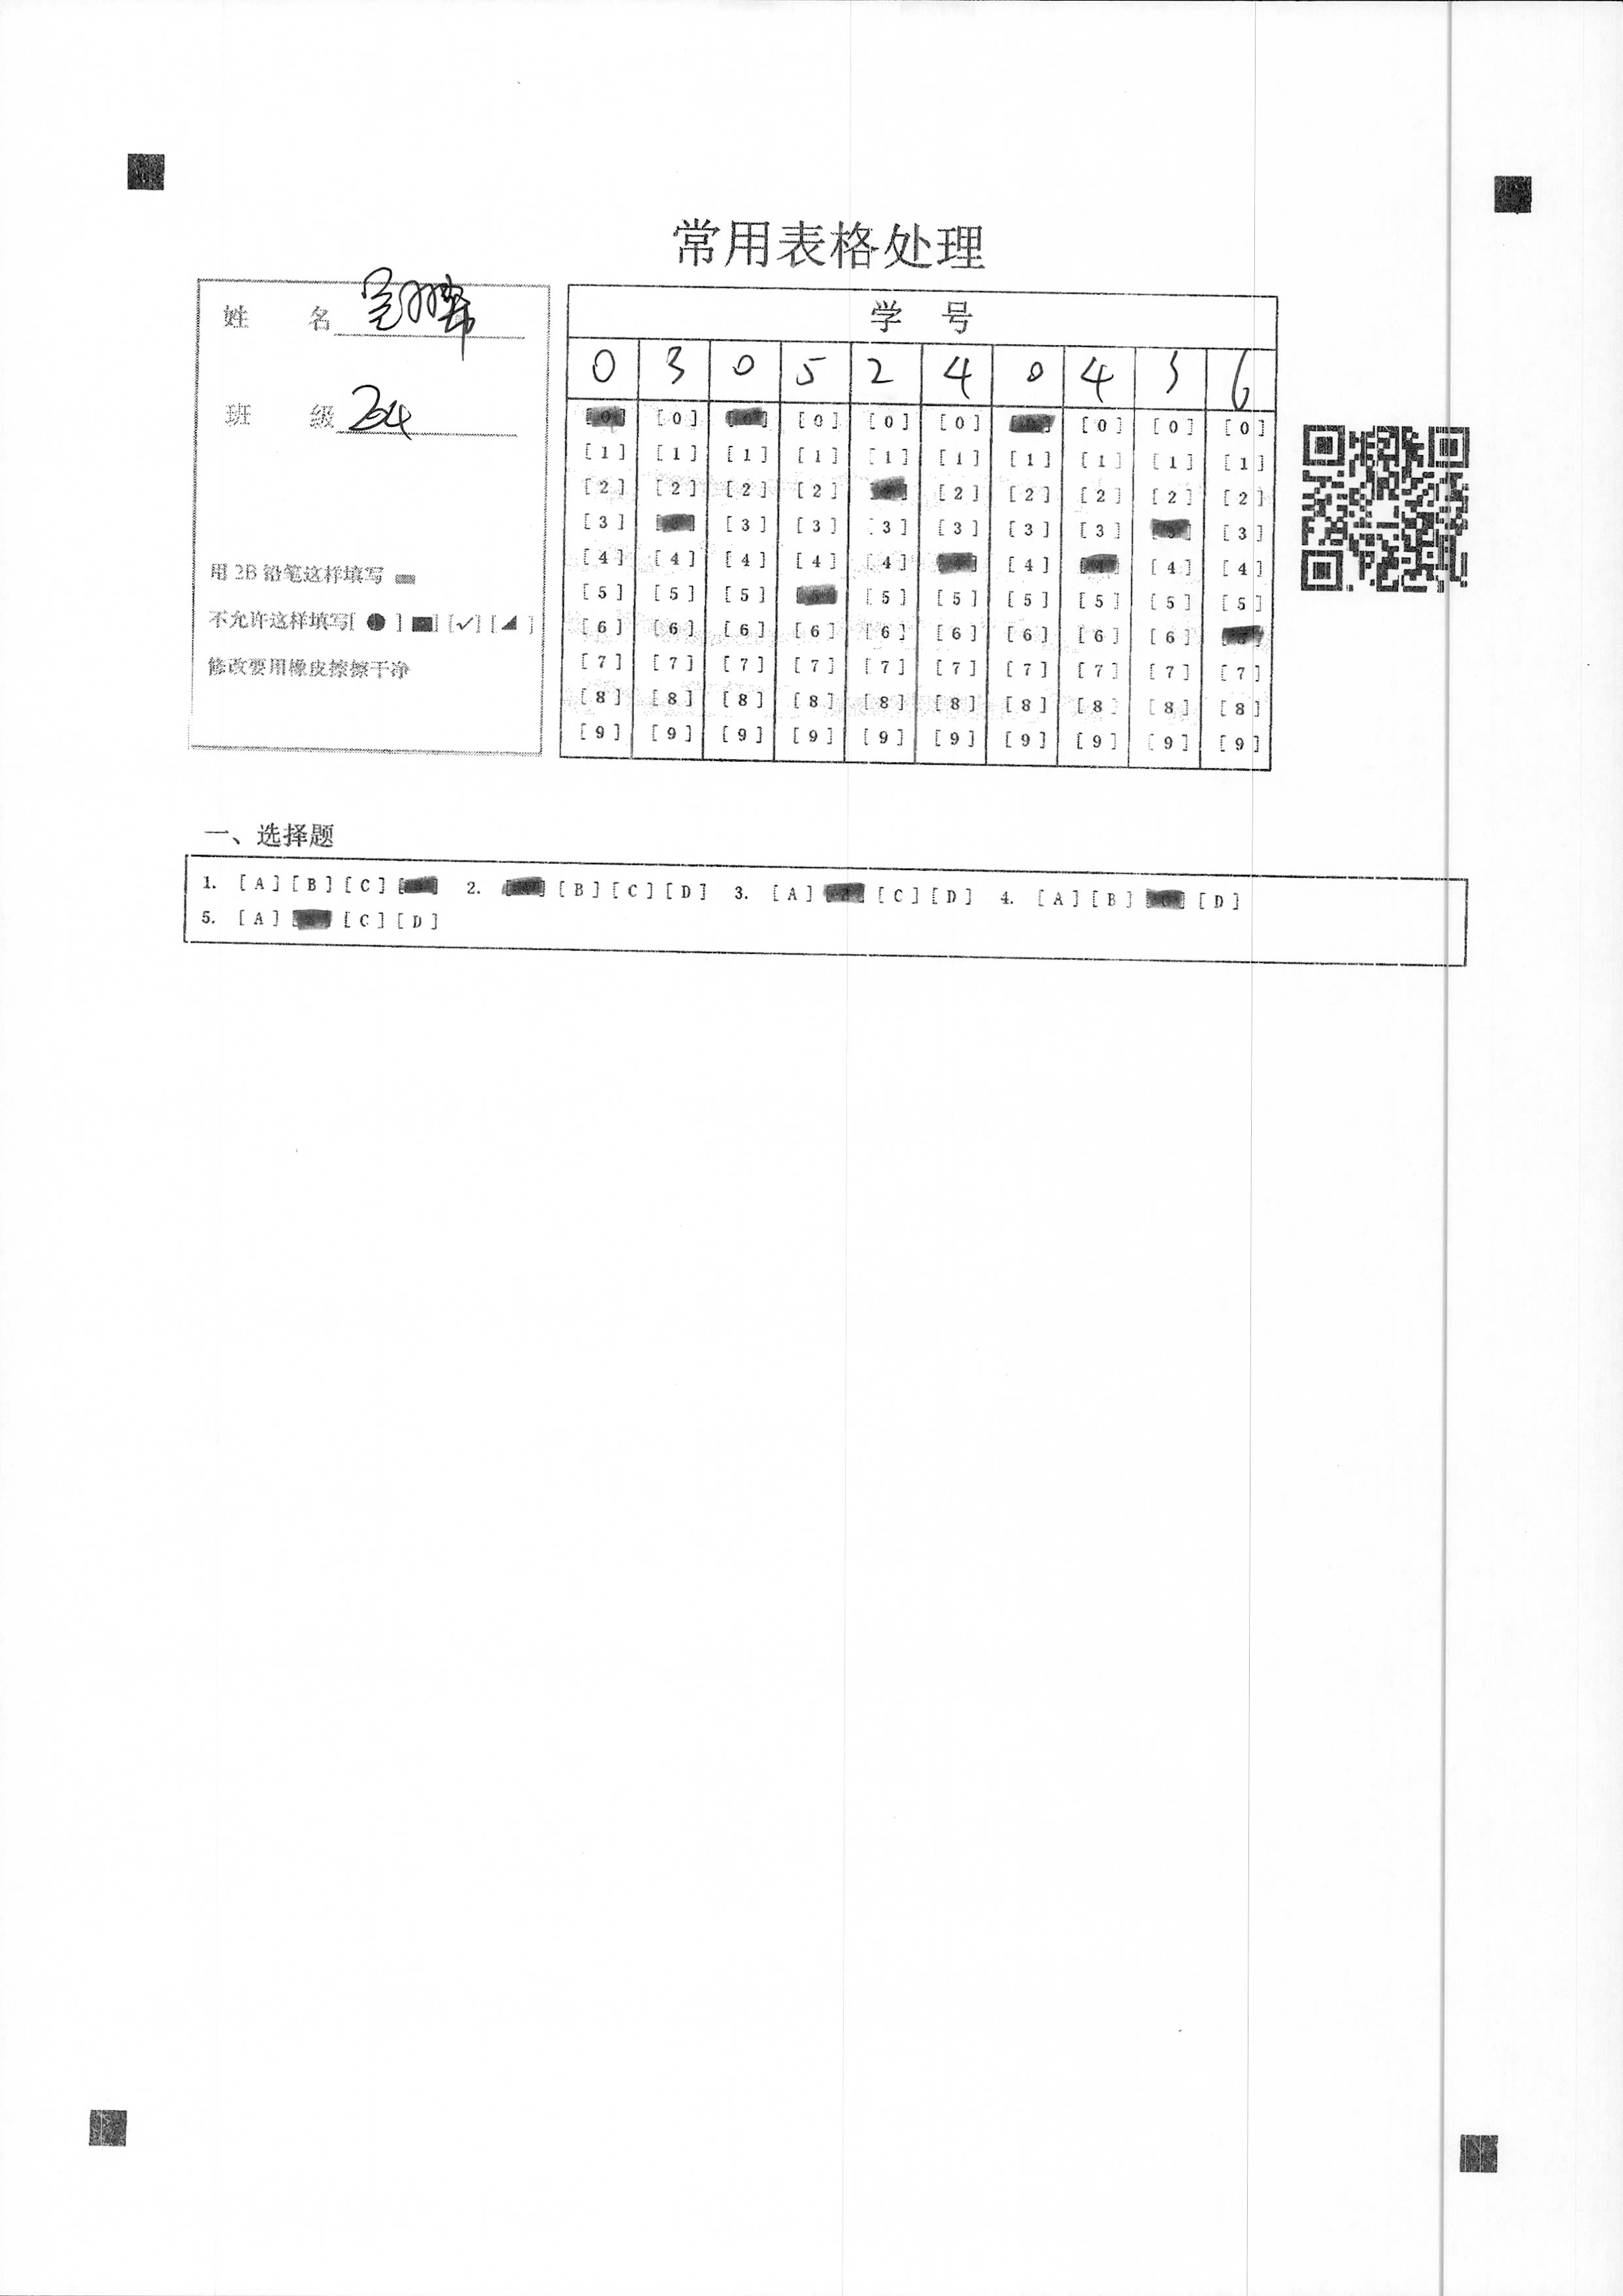 常用表格处理
姓 名
班 级 204
用 2B 铅笔这样填写
不允许这样填写[ ● ] ■] [✓] [◢ ]
修改要用橡皮擦擦干净
学 号
0 3 0 5 2 4 0 4 3 6
[0] [0] [0] [0] [0] [0] [0] [0] [0] [0]
[1] [1] [1] [1] [1] [1] [1] [1] [1] [1]
[2] [2] [2] [2] [2] [2] [2] [2] [2]
[3] [3] [3] [3] [3] [3] [3] [3]
[4] [4] [4] [4] [4] [4] [4] [4]
[5] [5] [5] [5] [5] [5] [5] [5] [5]
[6] [6] [6] [6] [6] [6] [6] [6] [6]
[7] [7] [7] [7] [7] [7] [7] [7] [7] [7]
[8] [8] [8] [8] [8] [8] [8] [8] [8] [8]
[9] [9] [9] [9] [9] [9] [9] [9] [9] [9]
一、选择题
1. [A] [B] [C] 2. [B] [C] [D] 3. [A] [C] [D] 4. [A] [B] [D]
5. [A] [C] [D]